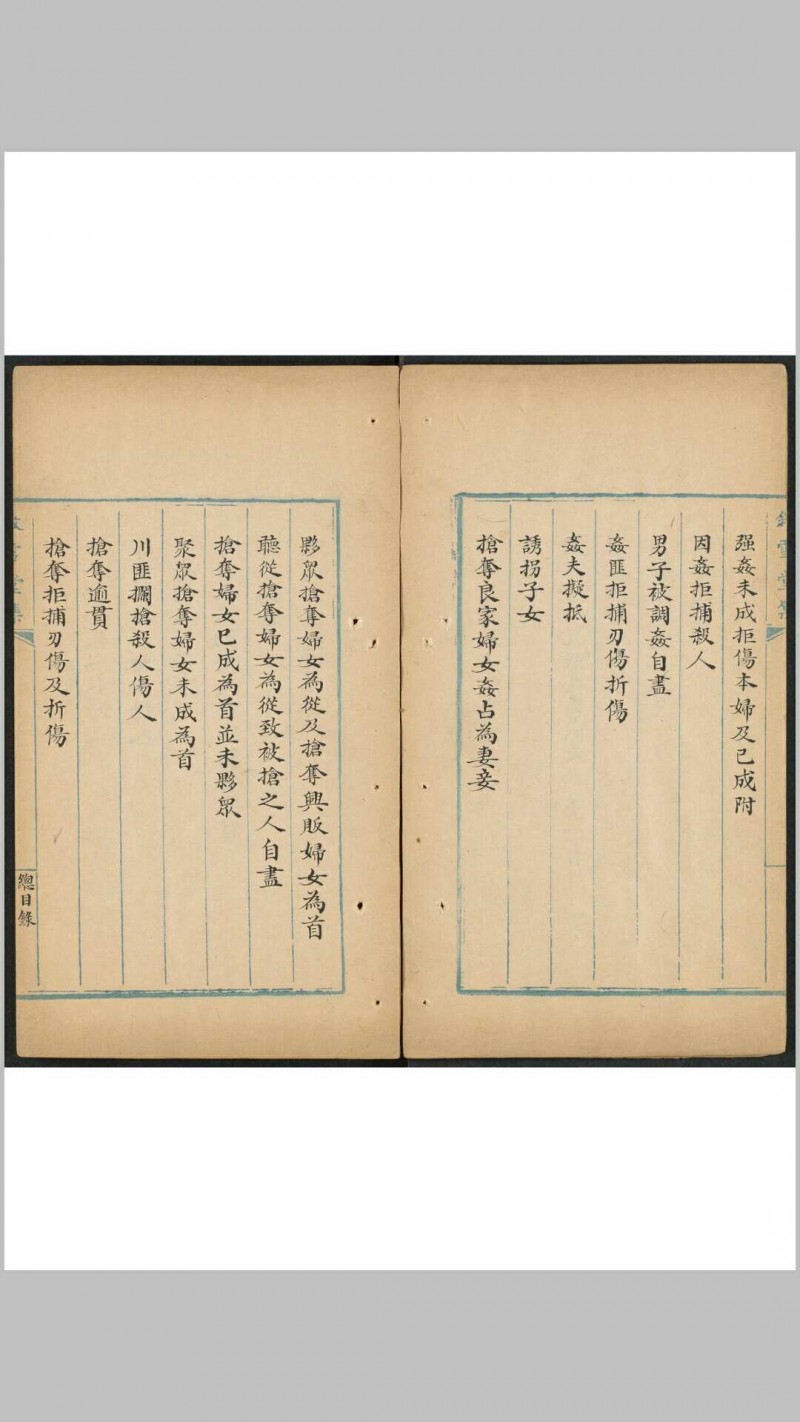 强姦未成拒傷本婦及已成附
因姦拒捕殺人
男子被調姦自盡
姦匪拒捕刃傷折傷
姦夫擬抵
誘拐子女
搶奪良家婦女姦占為妻妾
夥眾搶奪婦女為從及搶奪興販婦女為首
聽從搶奪婦女為從致被搶之人自盡
搶奪婦女已成為首並未夥眾
聚眾搶奪婦女未成為首
川匪攔搶殺人傷人
搶奪逾貫
搶奪拒捕刃傷及折傷
總目錄